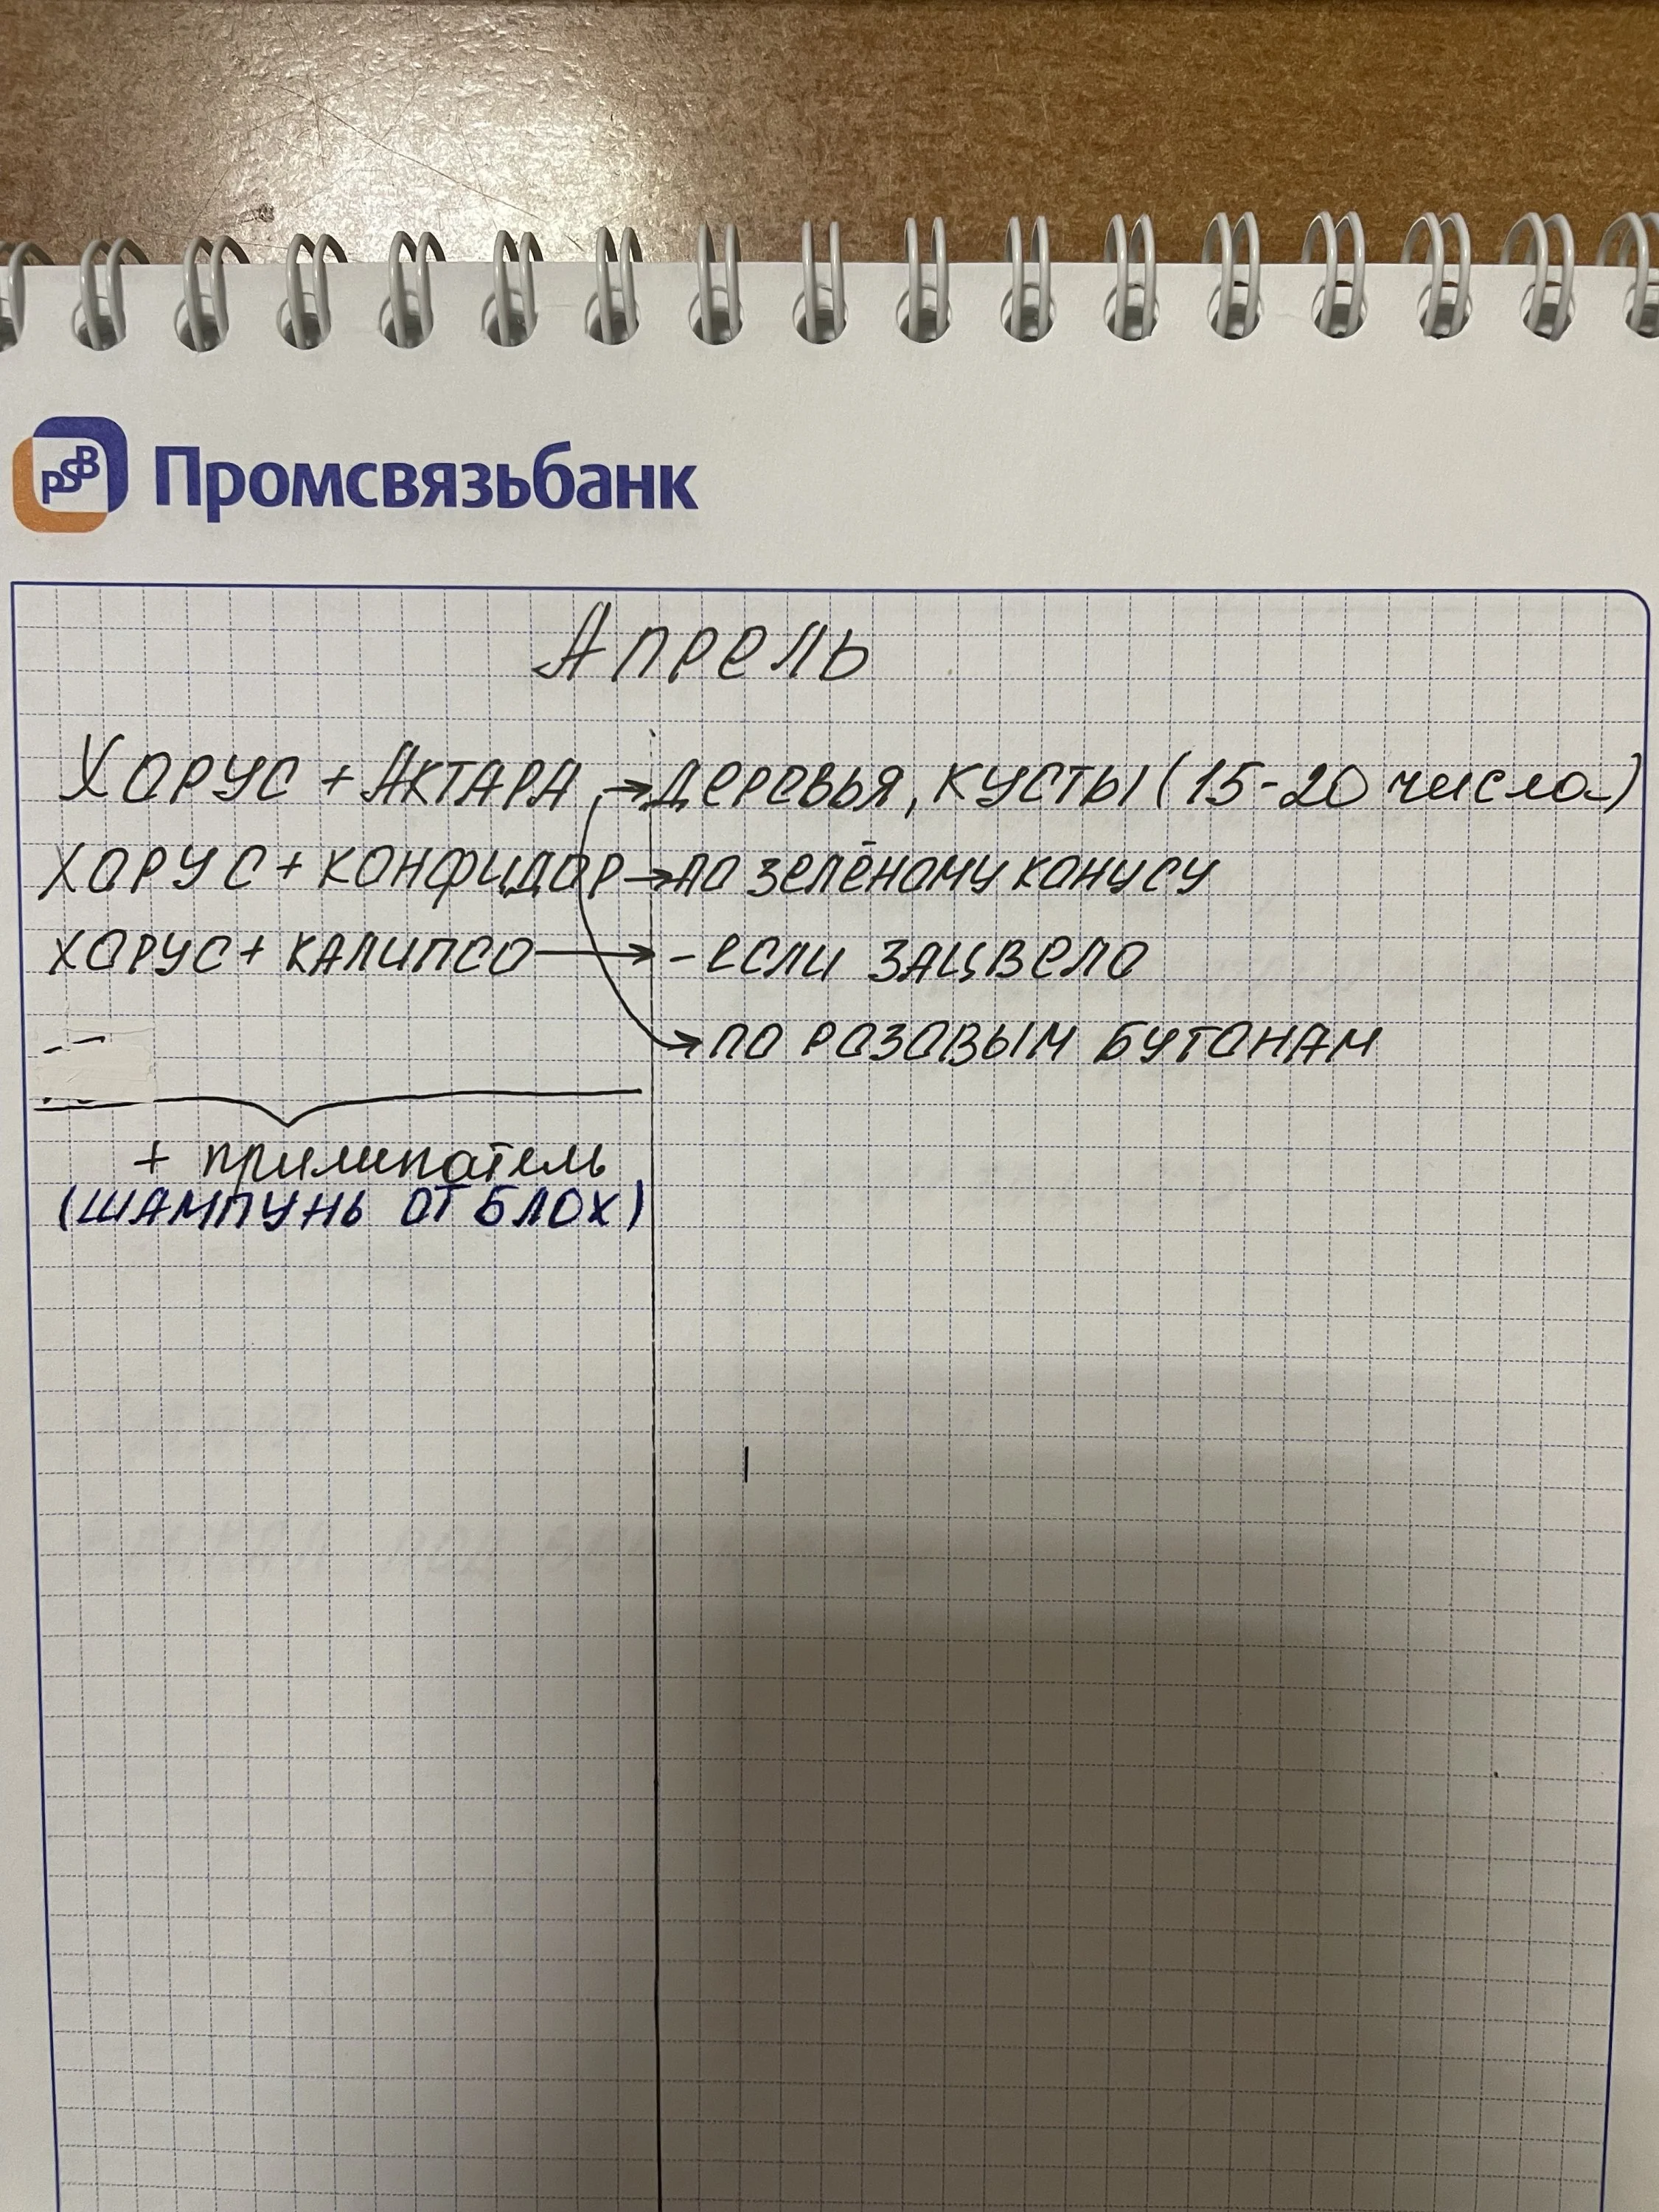 PSB Промсвязьбанк
Апрель
Хорус + Актара → деревья, кусты (15-20 числа)
хорус + конфидор → по зелёному конусу
хорус + калипсо → - если зацвело
→ по розовым бутонам
+ прилипатель
(шампунь от блох)